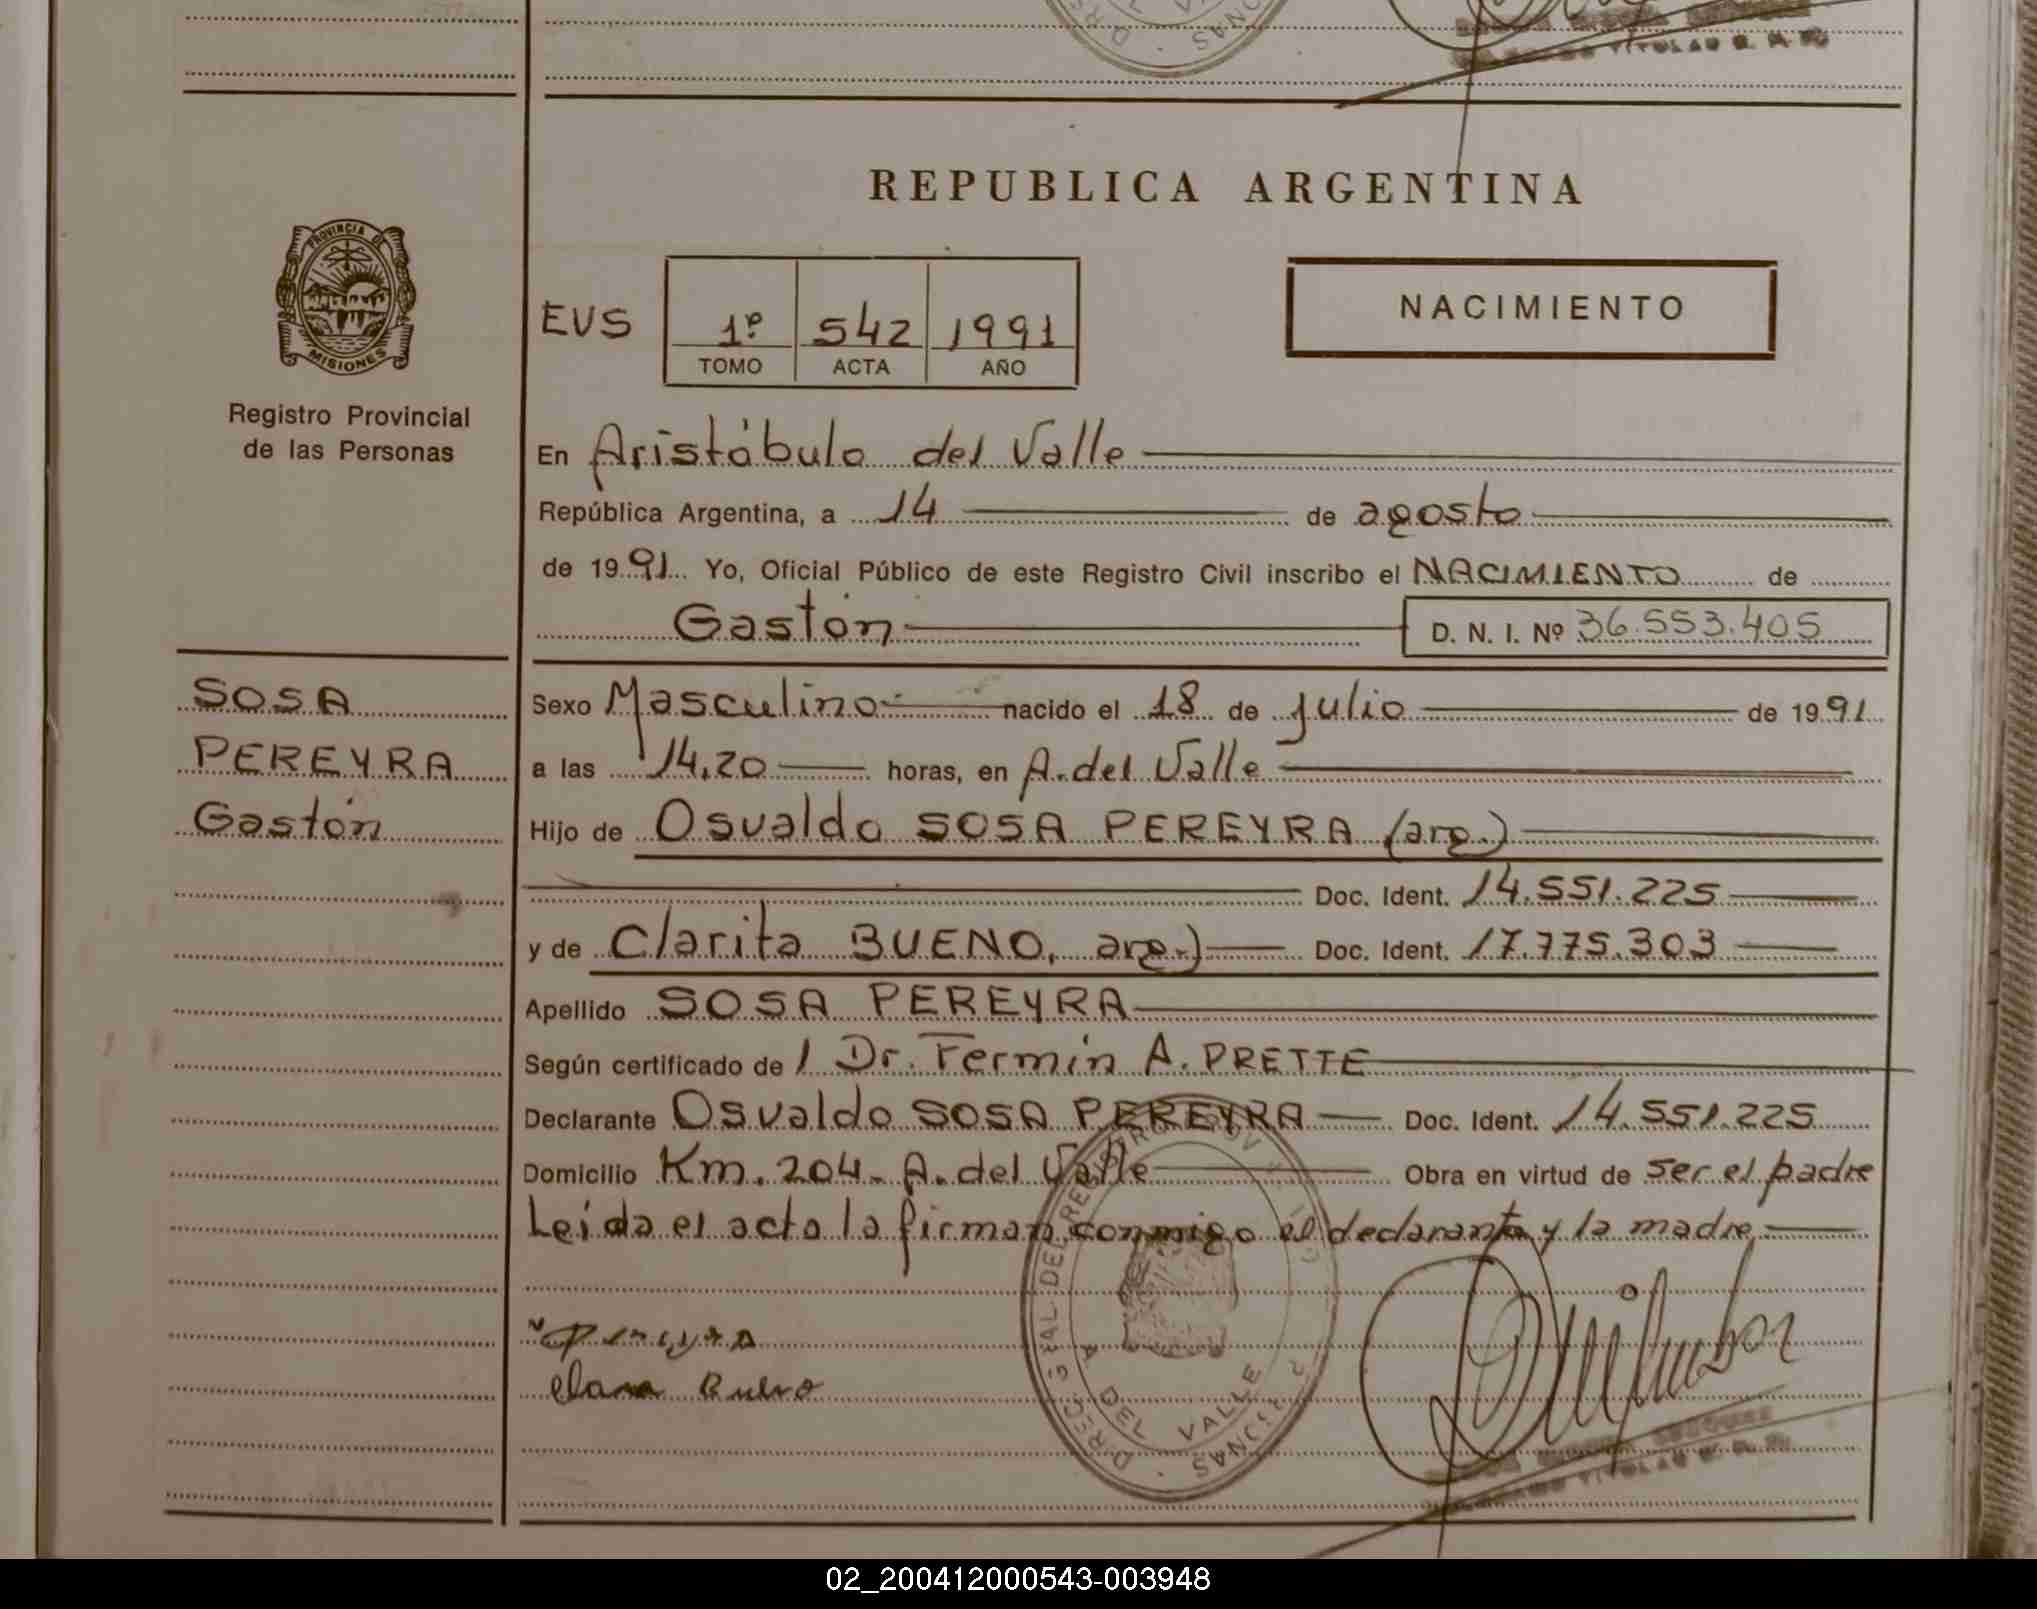 REPUBLICA ARGENTINA
PROVINCIA DE
MISIONES
Registro Provincial
de las Personas
EVS
1º 542 1991
TOMO ACTA AÑO
NACIMIENTO
En Aristóbulo del Valle
República Argentina, a 14 de agosto
de 1991 Yo, Oficial Público de este Registro Civil inscribo el NACIMIENTO de
Gastón D. N. I. Nº 36.553.405
SOSA
PEREYRA
Gastón
Sexo Masculino nacido el 18 de julio de 1991
a las 14,20 horas, en A. del Valle
Hijo de Osvaldo SOSA PEREYRA (arg.)
Doc. Ident. 14.551.225
y de Clarita BUENO, arg.) Doc. Ident. 17.775.303
Apellido SOSA PEREYRA
Según certificado de l Dr. Fermín A. PRETTE
Declarante Osvaldo SOSA PEREYRA Doc. Ident. 14.551.225
Domicilio Km. 204- A. del Valle Obra en virtud de ser el padre
Leída el acta la firman conmigo el declarante y la madre
Clara Bueno
DEL VALLE
02_200412000543-003948